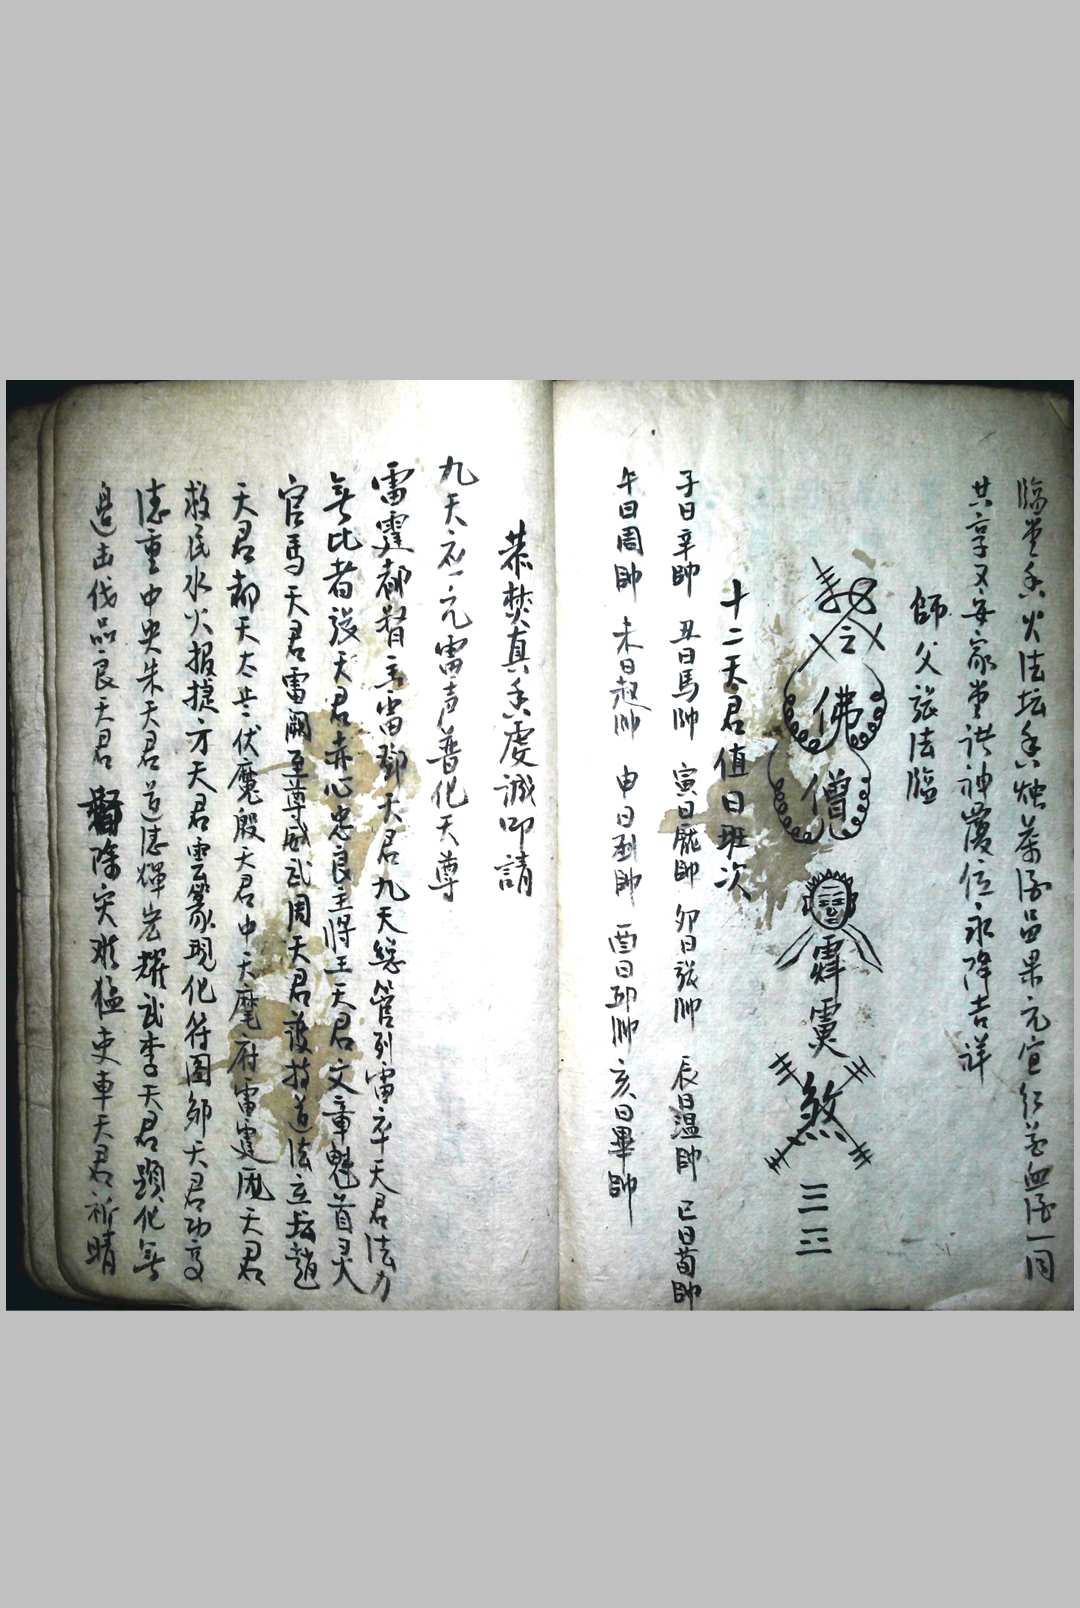 臨堂香火法坛香烛茶酒品果元宝红花血酒一同
共享又安家堂洪神覆位永降吉祥
師父張法臨
佛
僧
霹靂
煞
三三
十二天君值日班次
子日辛帥 丑日馬帥 寅日龐帥 卯日張帅 辰日温帥 巳日苟帥
午日周帥 未日赵帅 申日刘帥 酉日邱帅 亥日畢帥
恭焚真香虔誠叩請
九天应元雷声普化天尊
雷霆都督主雷鄧天君九天總管列雷辛天君法力
無比者張天君赤心忠良主將王天君文章魁首灵
官馬天君雷闕至尊威武周天君護持道法立坛趙
天君都天太岁伏魔殷天君中天魔府雷霆龐天君
救民水火报捷方天君雲篆現化符图邹天君功高
德重中央朱天君道德輝宏耀武李天君顕化無
邊击伐品良天君除灾难猛吏車天君祈晴